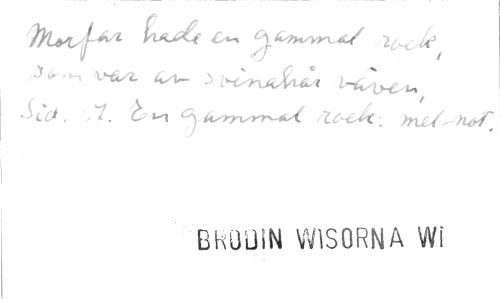 Morfar hade en gammal rock,
som var av svinahår väven,
Sid. 51. En gammal rock: mel-not.
BRODIN WISORNA Wi